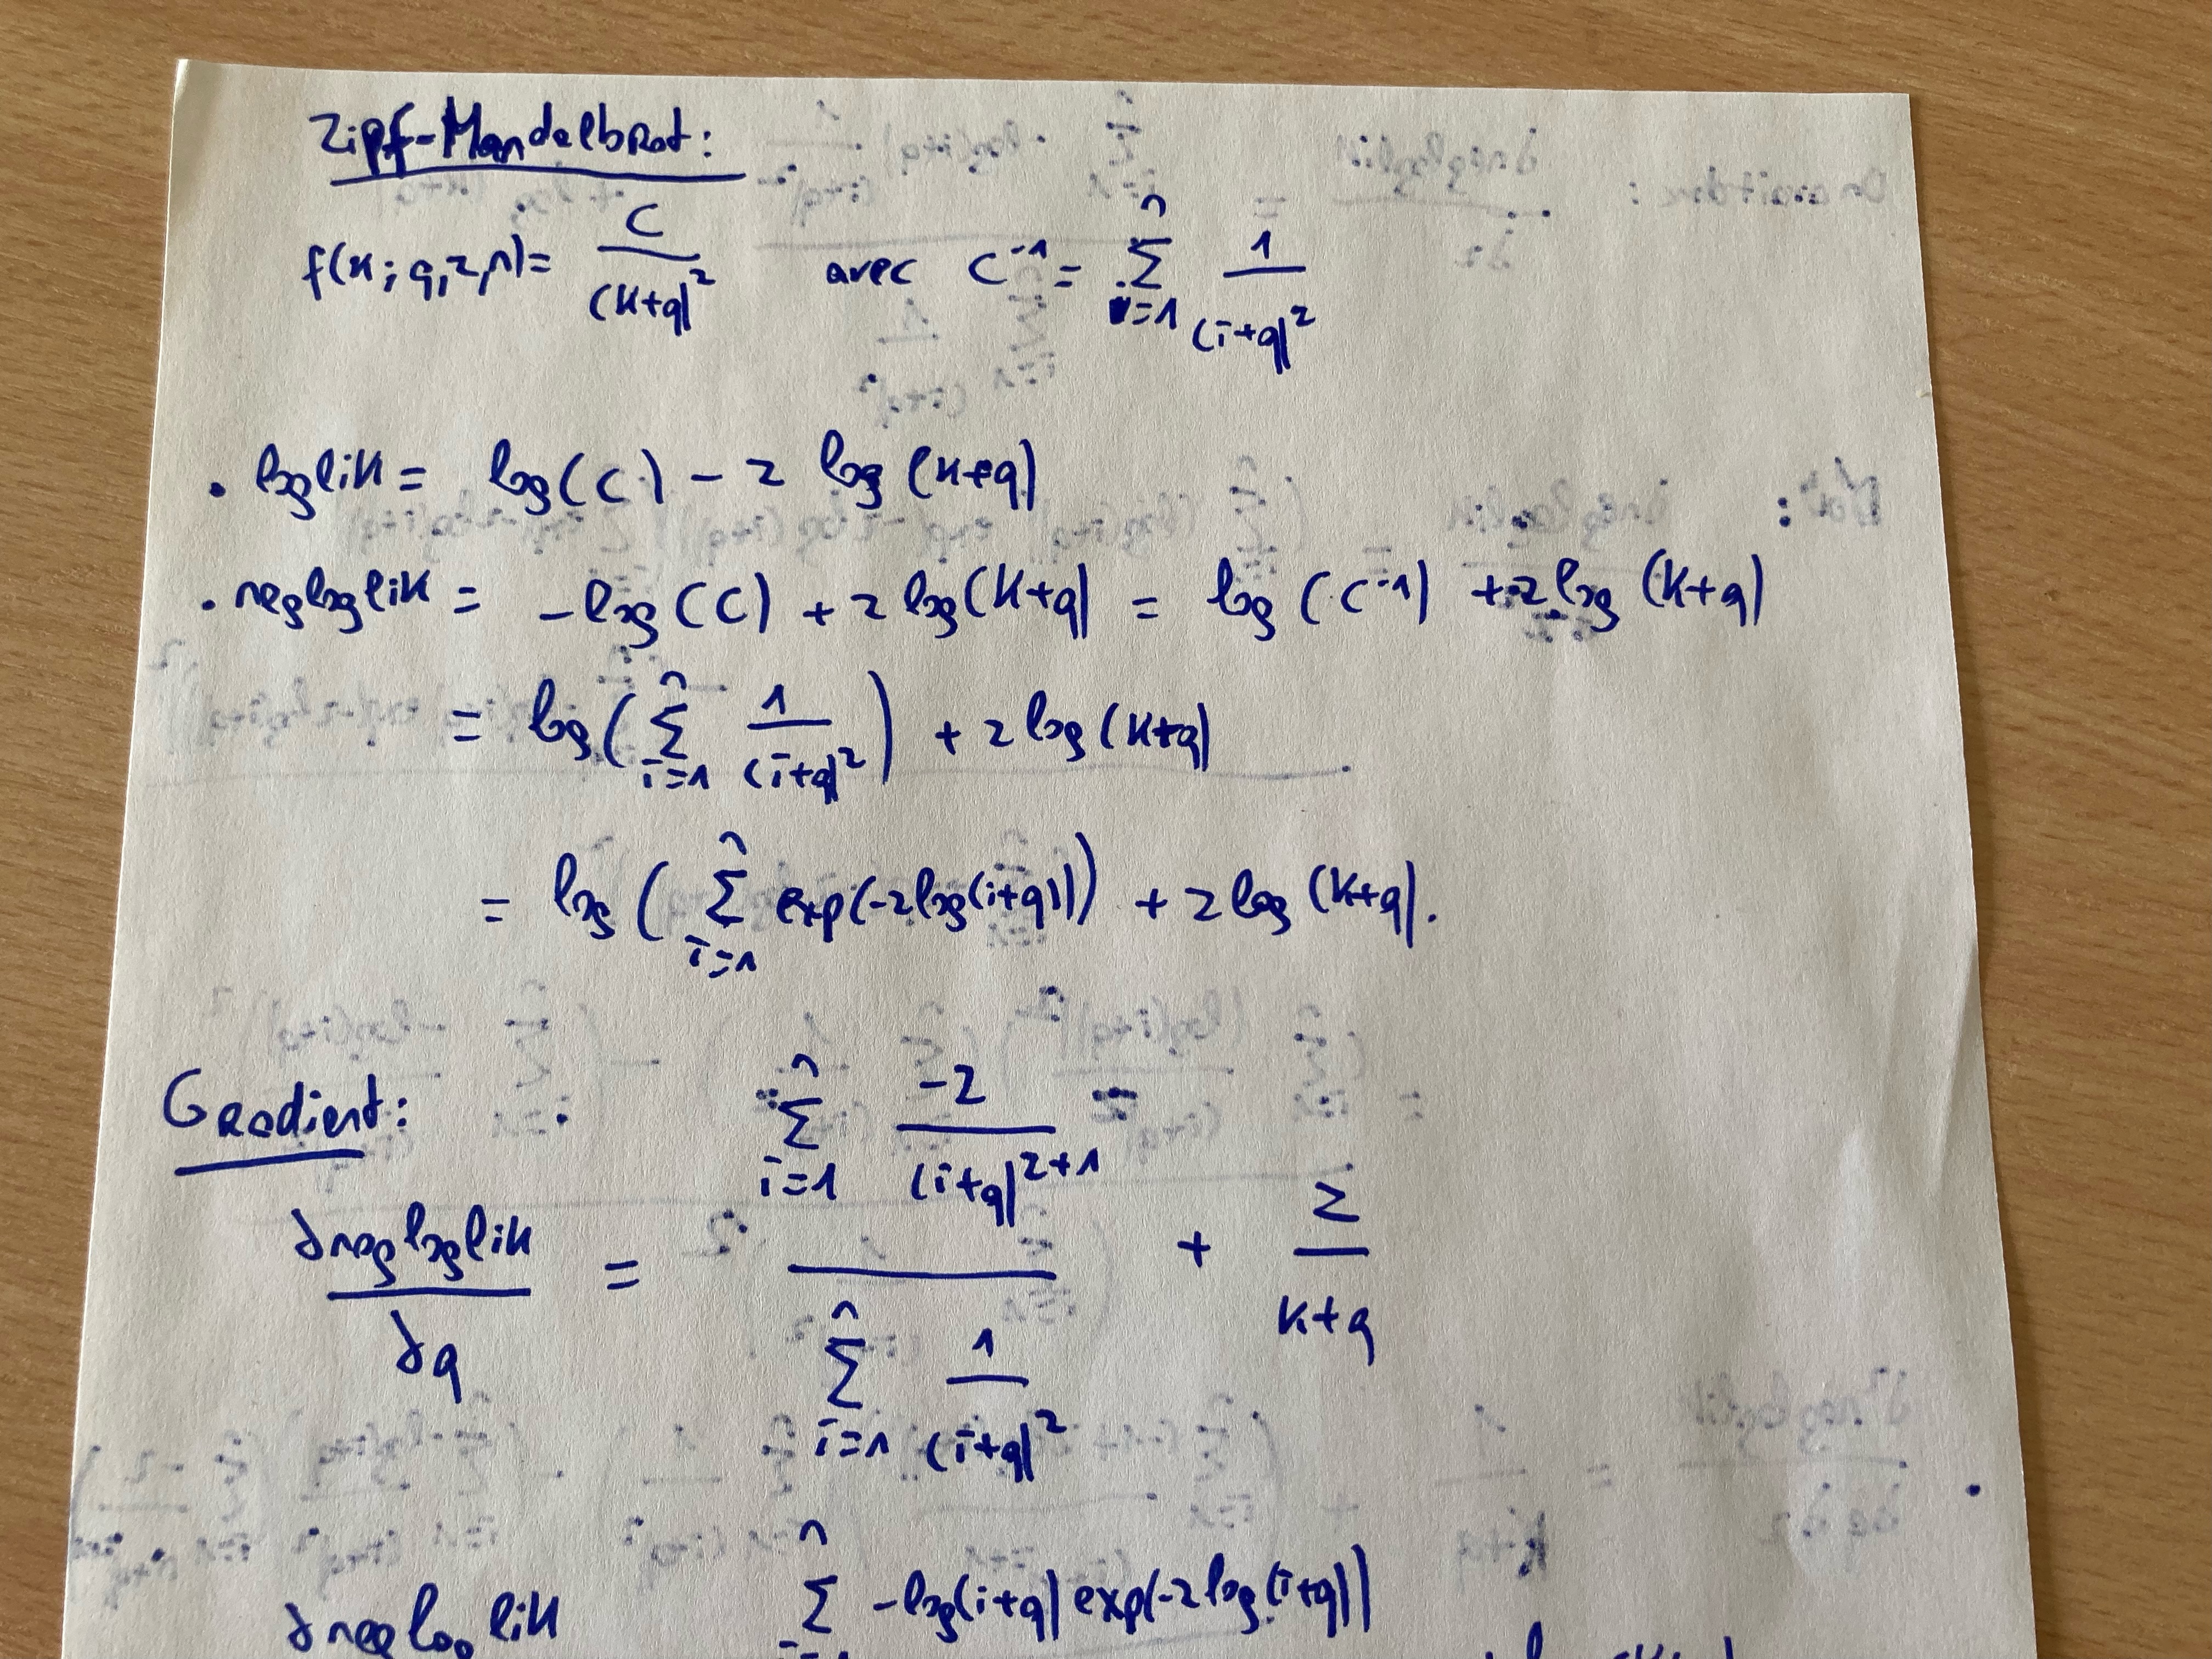 Zipf-Mandelbrot:
f(k; q, z, n) = C / (k+q)^z avec C^-1 = Σ_{i=1}^{n} 1 / (i+q)^z
• loglik = log(C) - z log(k+q)
• negloglik = -log(C) + z log(k+q) = log(C^-1) + z log(k+q)
= log(Σ_{i=1}^{n} 1 / (i+q)^z) + z log(k+q)
= log(Σ_{i=1}^{n} exp(-z log(i+q))) + z log(k+q).
Gradient:
∂negloglik / ∂q = (Σ_{i=1}^{n} -z / (i+q)^{z+1}) / (Σ_{i=1}^{n} 1 / (i+q)^z) + z / (k+q)
∂negloglik Σ^{n} -log(i+q) exp(-z log(i+q))